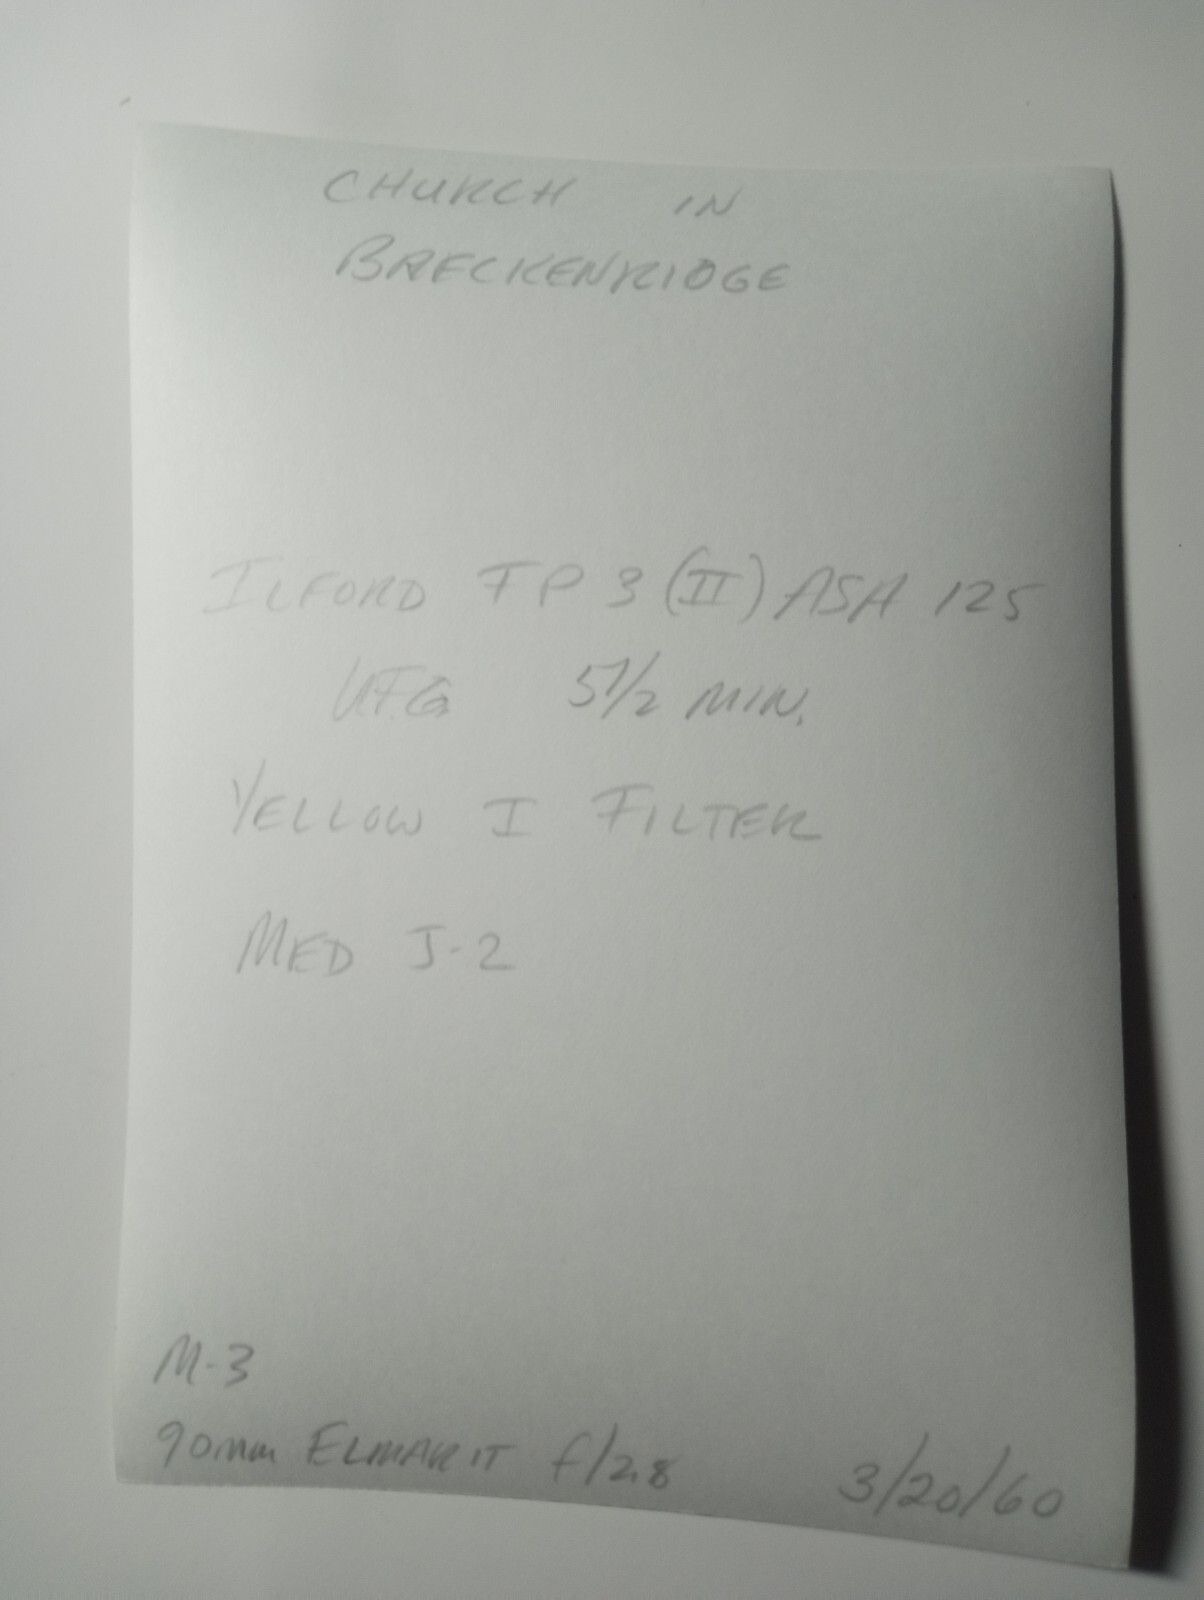 CHURCH IN
BRECKENRIDGE
ILFORD FP 3 (II) ASA 125
UFG 5 1/2 MIN.
YELLOW I FILTER
MED J-2
M-3
90mm ELMARIT f/2.8
3/20/60